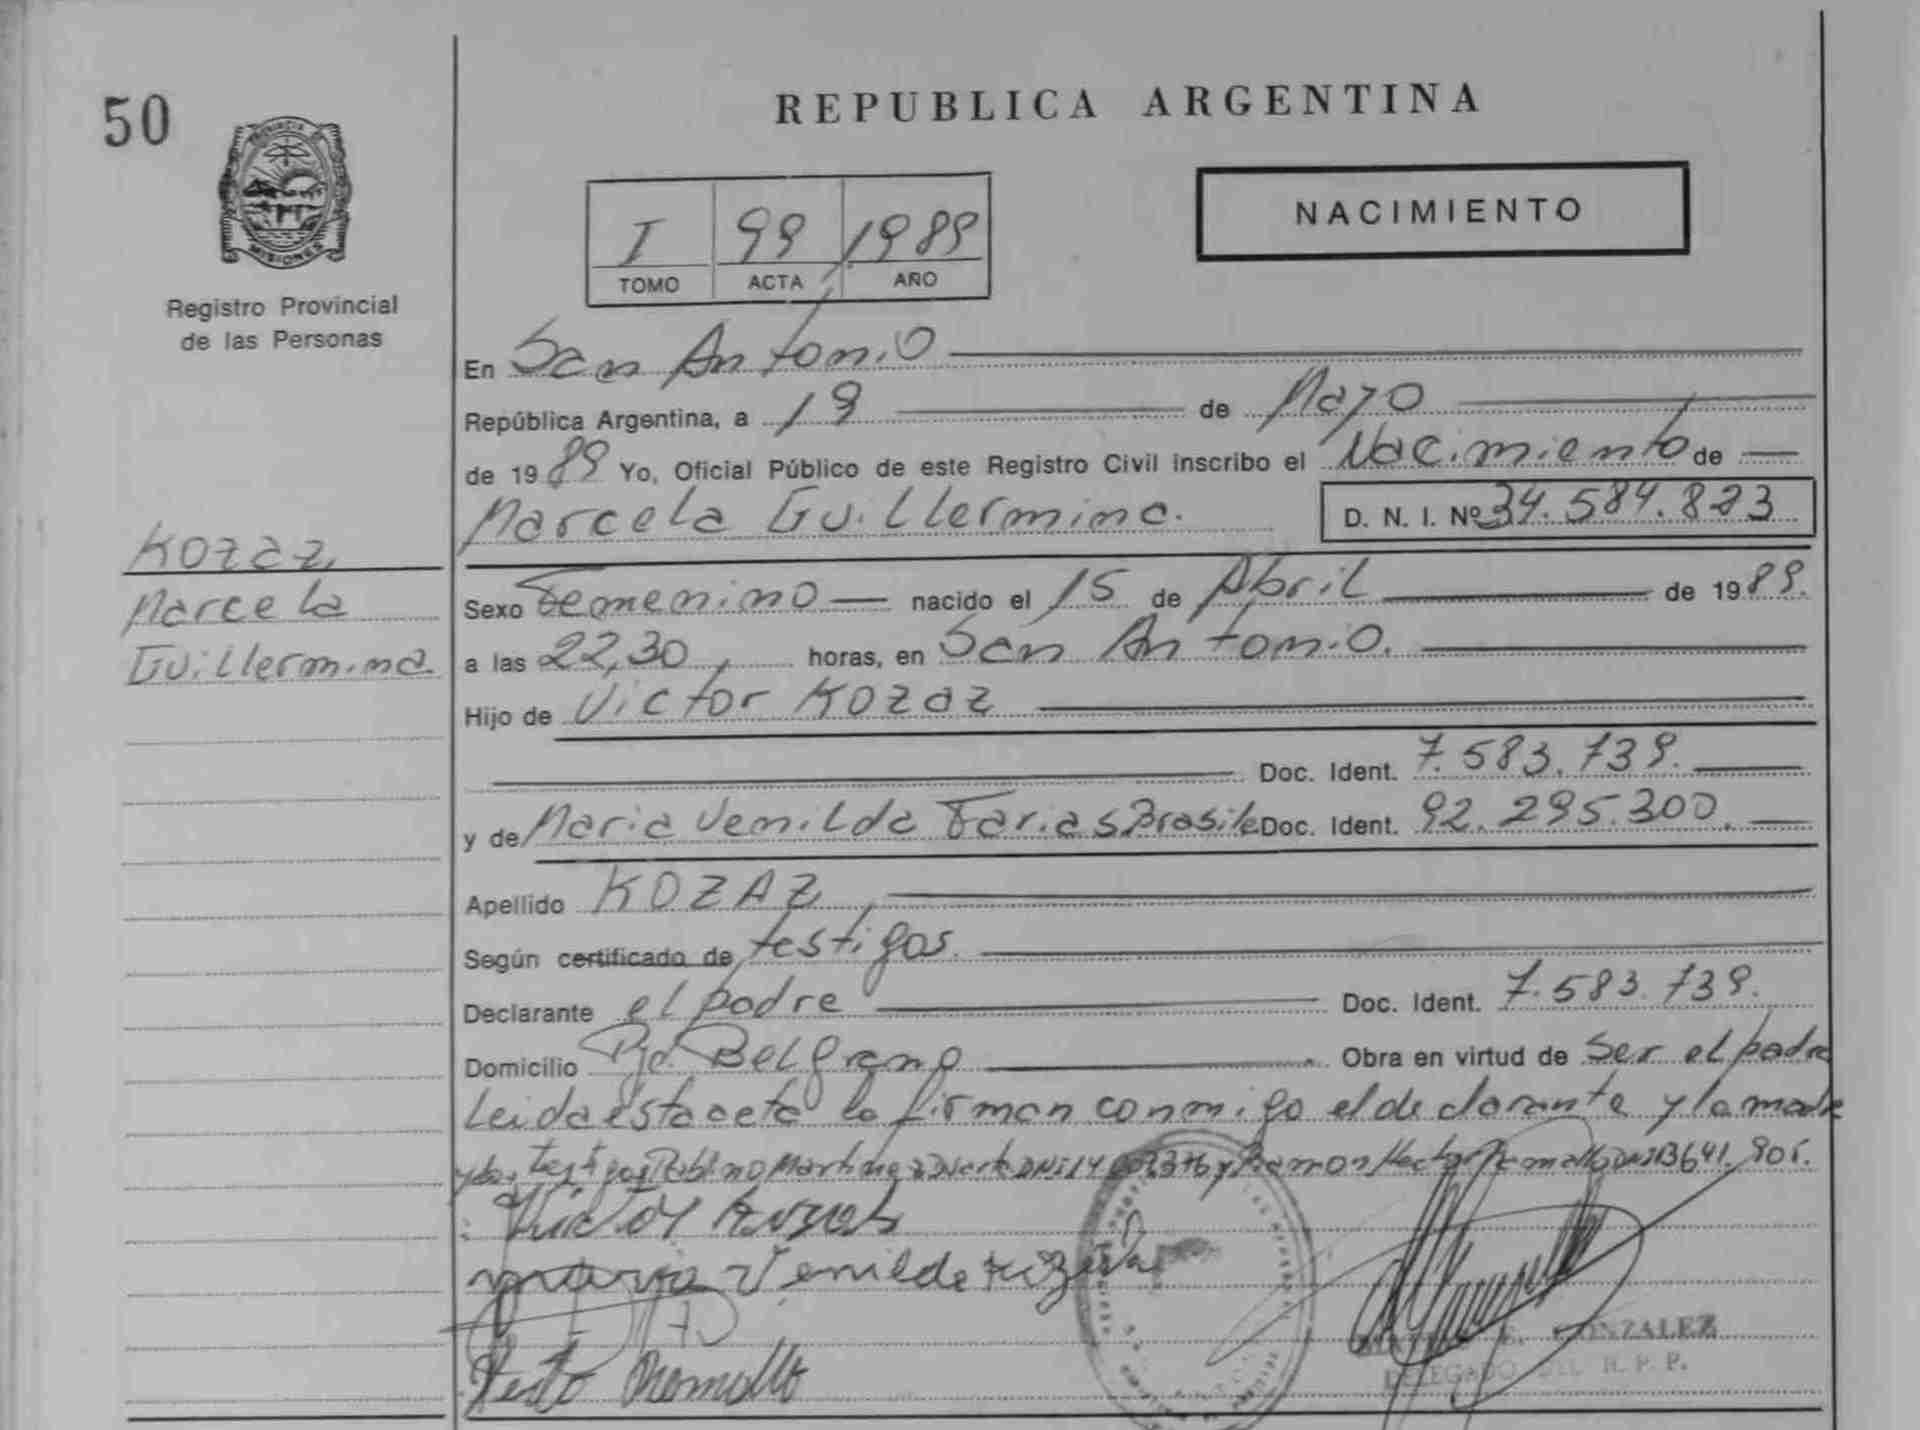 50
REPUBLICA ARGENTINA
PROVINCIA DE
MISIONES
Registro Provincial
de las Personas
I 99 1989
TOMO ACTA AÑO
NACIMIENTO
En San Antonio
República Argentina, a 19 de Mayo
de 1989 Yo, Oficial Público de este Registro Civil inscribo el Nacimiento de
Marcela Guillermina. D. N. I. Nº 34.584.823
Kozaz
Marcela
Guillermina.
Sexo Femenino nacido el 15 de Abril de 1989.
a las 22,30 horas, en San Antonio.
Hijo de Victor Kozaz
Doc. Ident. 7.583.739.
y de Maria Venilda Farias Brasile Doc. Ident. 92.295.300.
Apellido KOZAZ
Según certificado de testigos.
Declarante el padre Doc. Ident. 7.583.739.
Domicilio Pje. Belgrano Obra en virtud de Ser el padre
Leida esta acta la firman conmigo el declarante y la madre
y los testigos Martinez Duarte DNI 14 y Ramon Hector DNI 13641.905.
Victor
maria Venilde
GONZALEZ
DELEGADO DEL R. P. P.